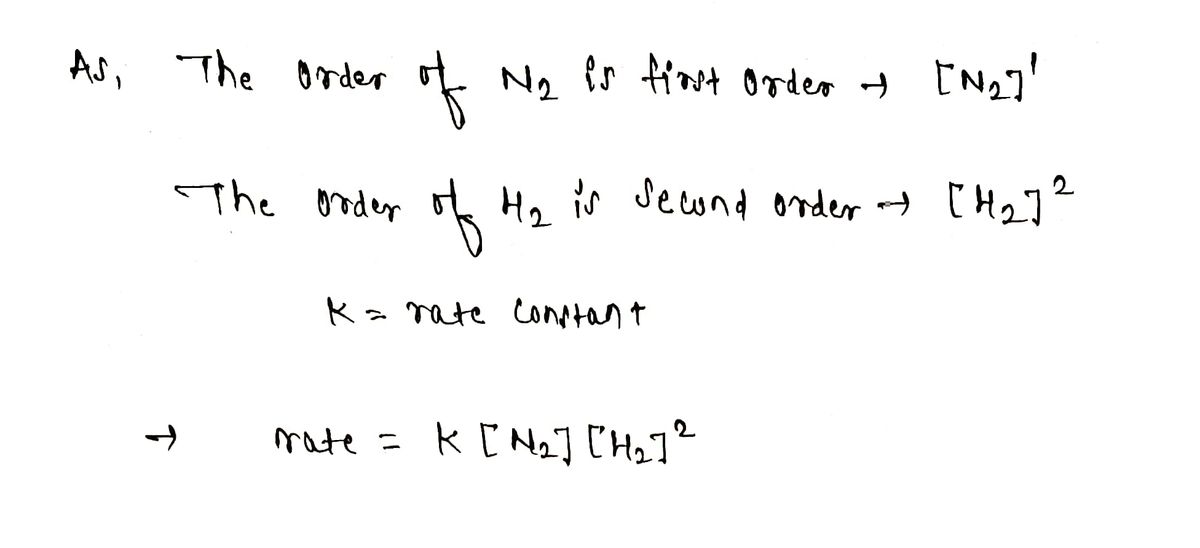 As, The order of N₂ is first order → [N₂]¹
The order of H₂ is second order → [H₂]²
K = rate constant
→ rate = K [N₂] [H₂]²